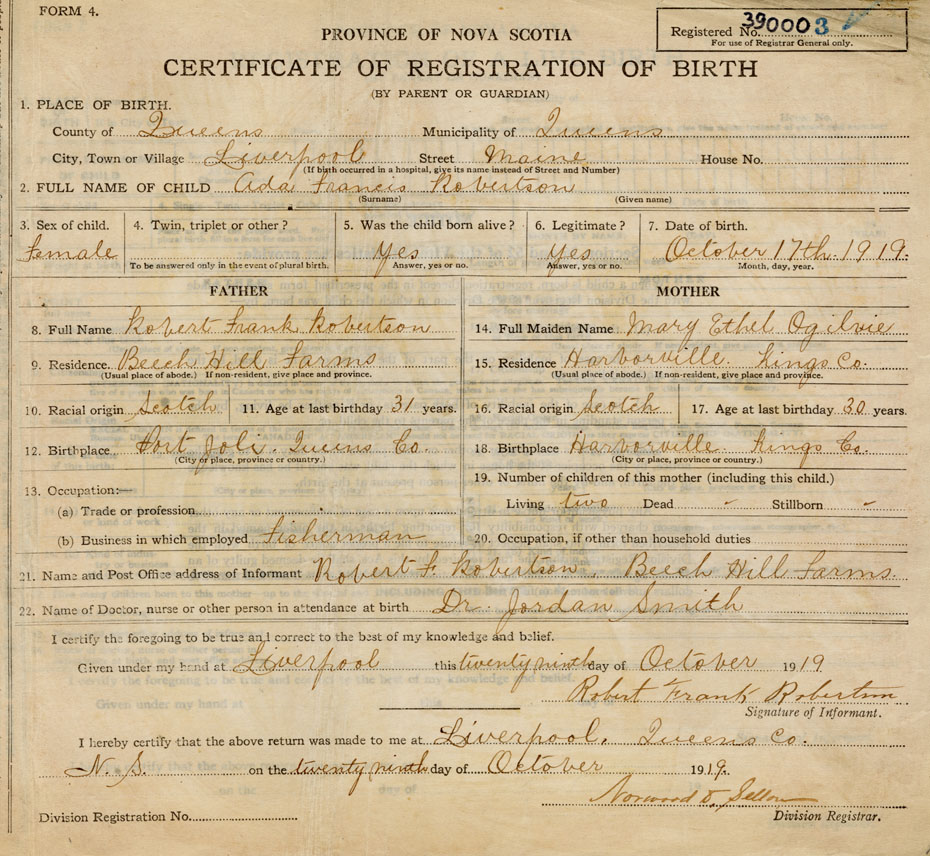 FORM 4.
Registered No. 390003
For use of Registrar General only.
PROVINCE OF NOVA SCOTIA
CERTIFICATE OF REGISTRATION OF BIRTH
(BY PARENT OR GUARDIAN)
1. PLACE OF BIRTH.
County of Queens Municipality of Queens
City, Town or Village Liverpool Street Maine House No.
(If birth occurred in a hospital, give its name instead of Street and Number)
2. FULL NAME OF CHILD Ada Francis Robertson
(Surname) (Given name)
3. Sex of child. 4. Twin, triplet or other? 5. Was the child born alive? 6. Legitimate? 7. Date of birth.
Female Yes Yes October 17th. 1919.
To be answered only in the event of plural birth. Answer, yes or no. Answer, yes or no. Month, day, year.
FATHER MOTHER
8. Full Name Robert Frank Robertson 14. Full Maiden Name Mary Ethel Ogilvie
9. Residence. Beech Hill Farms 15. Residence Harborville. Kings Co.
(Usual place of abode.) If non-resident, give place and province. (Usual place of abode.) If non-resident, give place and province.
10. Racial origin Scotch 11. Age at last birthday 31 years. 16. Racial origin Scotch 17. Age at last birthday 30 years.
12. Birthplace Port Joli. Queens Co. 18. Birthplace Harborville Kings Co.
(City or place, province or country.) (City or place, province or country.)
13. Occupation:— 19. Number of children of this mother (including this child.)
(a) Trade or profession Living two Dead - Stillborn -
(b) Business in which employed Fisherman 20. Occupation, if other than household duties
21. Name and Post Office address of Informant Robert F. Robertson. Beech Hill Farms
22. Name of Doctor, nurse or other person in attendance at birth Dr. Jordan Smith
I certify the foregoing to be true and correct to the best of my knowledge and belief.
Given under my hand at Liverpool this twenty ninth day of October 1919
Robert Frank Robertson
Signature of Informant.
I hereby certify that the above return was made to me at Liverpool. Queens Co.
N. S. on the twenty ninth day of October 1919.
Norwood
Division Registration No. Division Registrar.